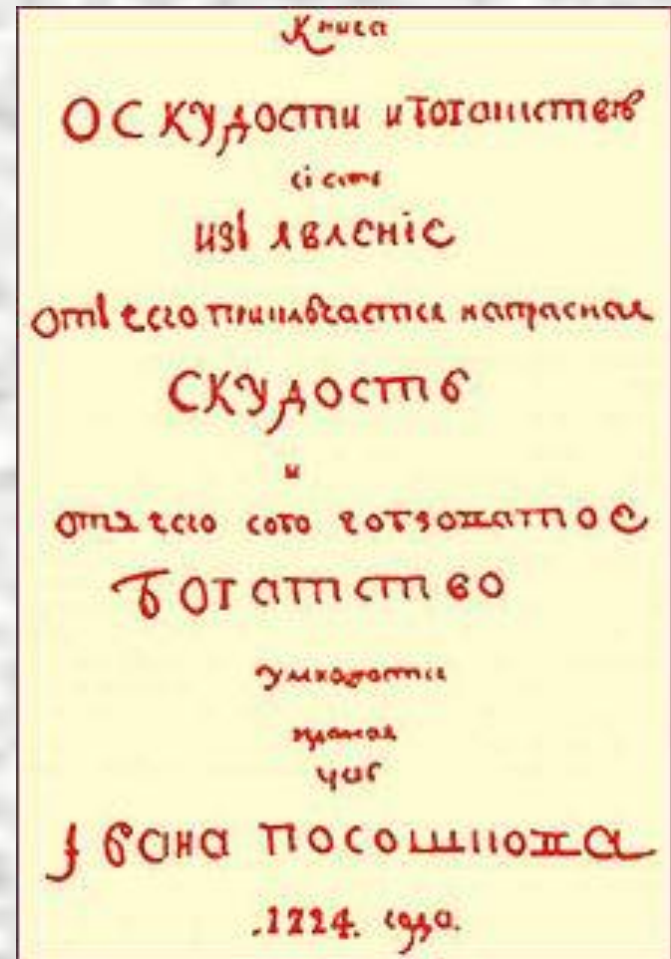 Книга
О СКУДОСТИ и богатствѣ
сі есть
изъявленіе
отъ чего приключается напрасная
СКУДОСТЬ
и
отъ чего
богатство
умножается
1724. года.